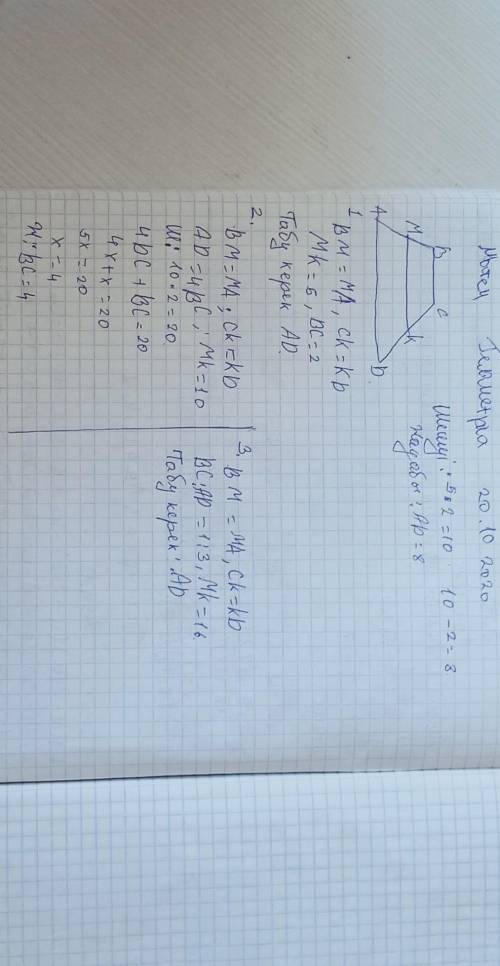 Геометрия 20.10.2020
B
M
C
K
A
D
Шешуі: 5·2=10 10-2=8
Жауабы: AD=8
1 BM=MA, CK=KD
MK=5, BC=2
Табу керек AD.
2. BM=MA; CK=KD
AD=4BC; MK=10
Ш: 10·2=20
4BC+BC=20
4x+x=20
5x=20
x=4
Ж: BC=4
3. BM=MA, CK=KD
BC:AD=1:3, MK=16
Табу керек: AD